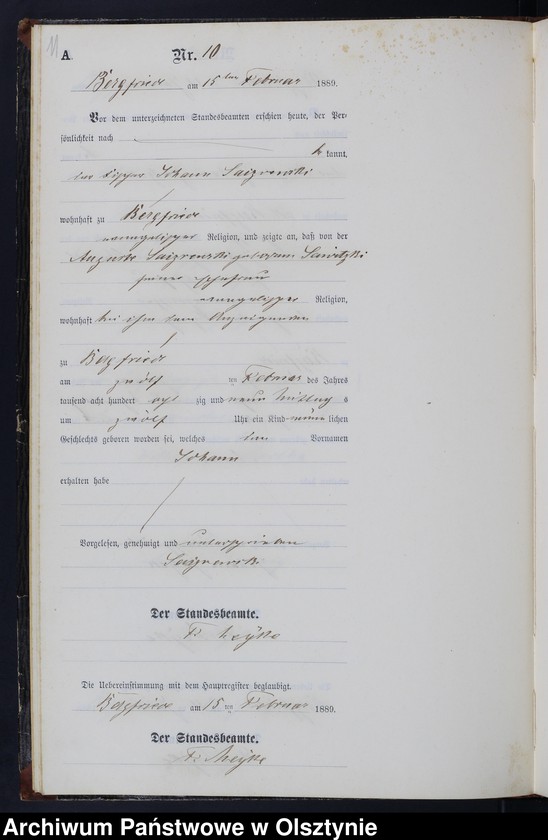 11
A.
Nr. 10
Bergfriede am 15ten Februar 1889.
Vor dem unterzeichneten Standesbeamten erschien heute, der Per-
sönlichkeit nach
be kannt,
der Johann
wohnhaft zu Bergfriede
evangelischer Religion, und zeigte an, daß von der
Auguste geborenen
seiner Ehefrau
evangelischer Religion,
wohnhaft bei ihm dem Anzeigenden
zu Bergfriede
am zwölf ten Februar des Jahres
tausend acht hundert acht zig und neun Mittag s
um zwölf Uhr ein Kind männ lichen
Geschlechts geboren worden sei, welches den Vornamen
Johann
erhalten habe
Vorgelesen, genehmigt und unterschrieben
Der Standesbeamte.
Die Uebereinstimmung mit dem Hauptregister beglaubigt.
Bergfriede am 15 ten Februar 1889.
Der Standesbeamte.
Archiwum Państwowe w Olsztynie